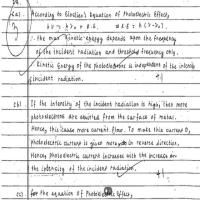 (a). According to Einstein's Equation of Photoelectric Effect,
hν = hν₀ + K.E. ⇒ K.E = h(ν-ν₀)
∴ the max kinetic energy depends upon the frequency
of the incident radiation and threshold frequency only.
Kinetic Energy of the photoelectrons is independent of the intensity
incident radiation. +1
(b) If the intensity of the incident radiation is high, then more
photoelectrons are emitted from the surface of metal.
Hence, this cause more current flow. To make this current 0,
photoelectric current is given more in reverse direction.
Hence photoelectric current increases with the increase in
the intensity of the incident radiation. +1
(c). for the equation of Photoelectric Effect,